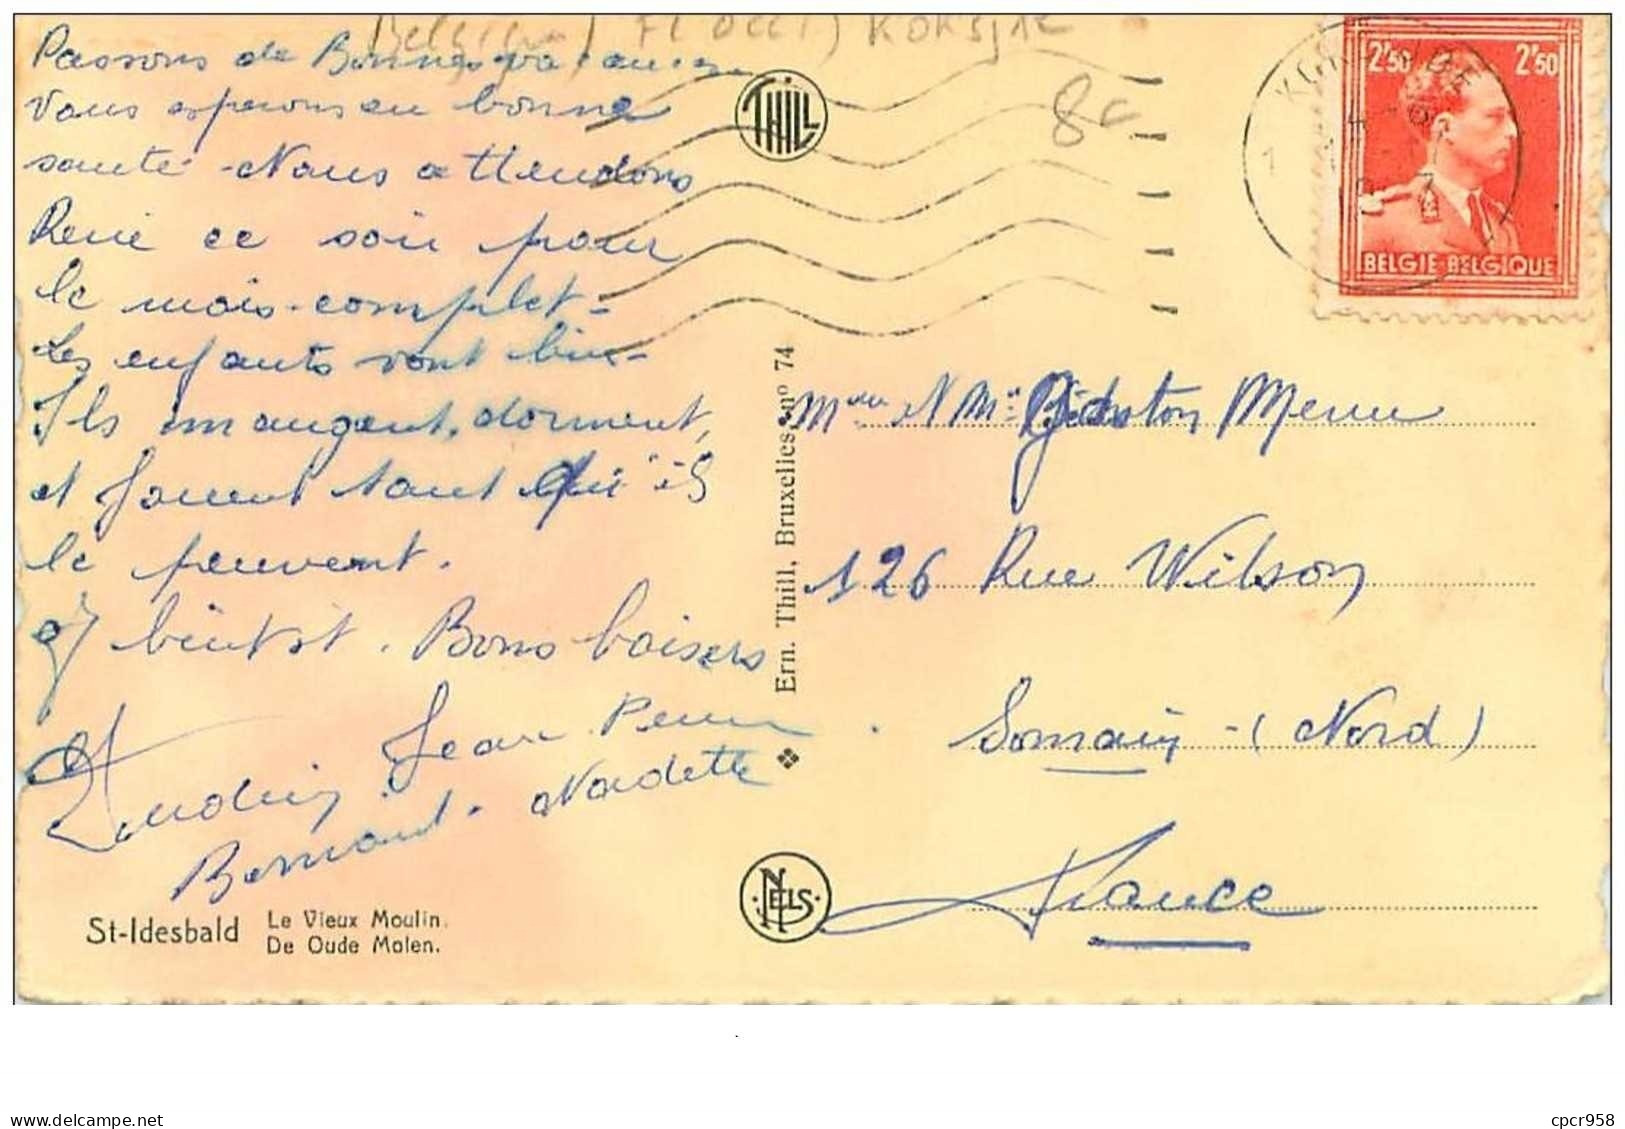 Belgium) Fl occi) KOKSIJDE
Passons de Bonnes vacances
Vous esperons en bonne
santé - Nous attendons
René ce soir pour
le mois complet -
Les enfants vont bien -
Ils mangent, dorment,
et jouent tant qu'ils
le peuvent.
à bientôt. Bons baisers
Jean Pierre
Bernard. Nordette
St-Idesbald
Le Vieux Moulin.
De Oude Molen.
THILL
Ern. Thill, Bruxelles, nº 74
NELS
8€
2'50 2'50
BELGIE BELGIQUE
Gaston Menu
126 Rue Wilson
Somain - (Nord)
France
delcampe.net
cpcr958